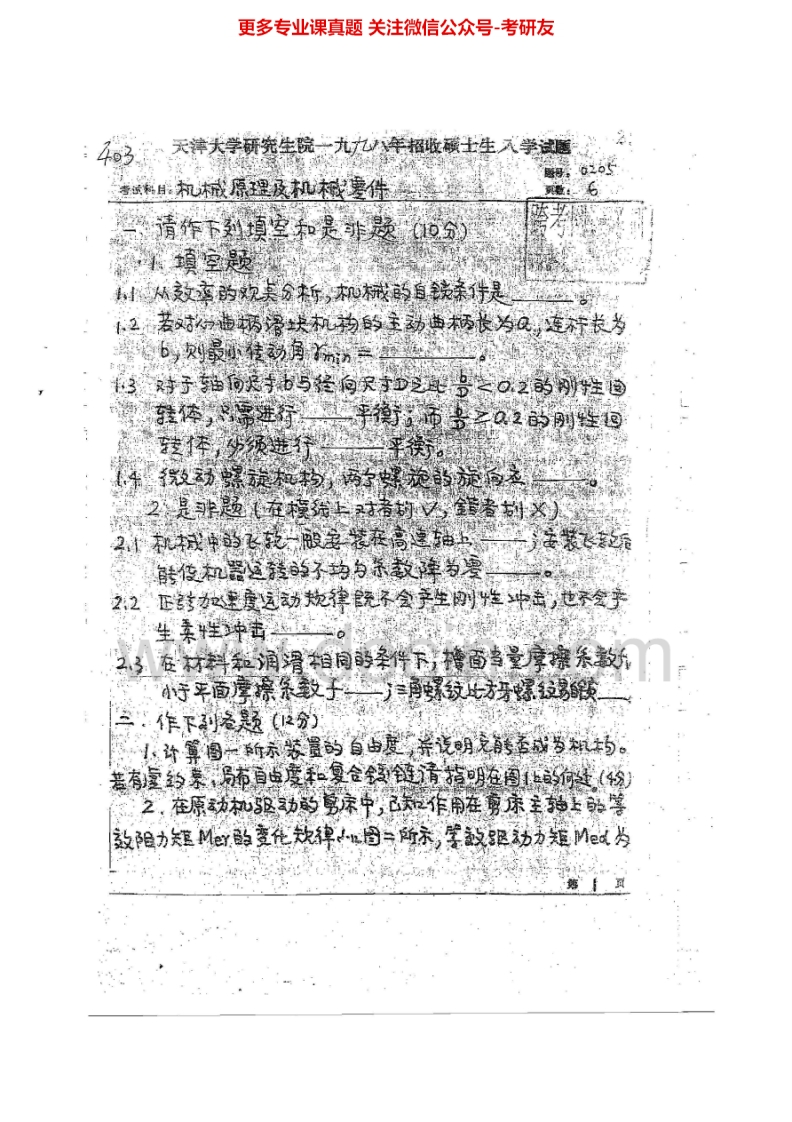 更多专业课真题 关注微信公众号-考研友
403
天津大学研究生院一九九八年招收硕士生入学试题
题号: 0205
考试科目: 机械原理及机械零件
页数: 6
一. 请作下列填空和是非题 (10分)
1. 填空题
1.1 从效率的观点分析, 机械的自锁条件是______。
1.2 若对心曲柄滑块机构的主动曲柄长为a, 连杆长为
b, 则最小传动角γmin = ______。
1.3 对于轴向尺寸b与径向尺寸D之比 b/D ≤ 0.2 的刚性回
转体, 只需进行______平衡; 而 b/D ≥ 0.2 的刚性回
转体, 必须进行______平衡。
1.4 微动螺旋机构, 两个螺旋的旋向应______。
2. 是非题 (在横线上对者划∨, 错者划×)
2.1 机械中的飞轮一般安装在高速轴上____; 安装飞轮后
能使机器运转的不均匀系数降为零____。
2.2 正弦加速度运动规律既不会产生刚性冲击, 也不会产
生柔性冲击____。
2.3 在材料和润滑相同的条件下, 槽面当量摩擦系数
小于平面摩擦系数 ____; 三角螺纹比方牙螺纹易自锁____
二. 作下列各题 (12分)
1. 计算图一所示装置的自由度, 并说明它能否成为机构。
若有虚约束、局部自由度和复合铰链请指明在图上的何处。(4分)
2. 在原动机驱动的剪床中, 已知作用在剪床主轴上的等
效阻力矩Mer的变化规律如图二所示, 等效驱动力矩Med为
第 1 页